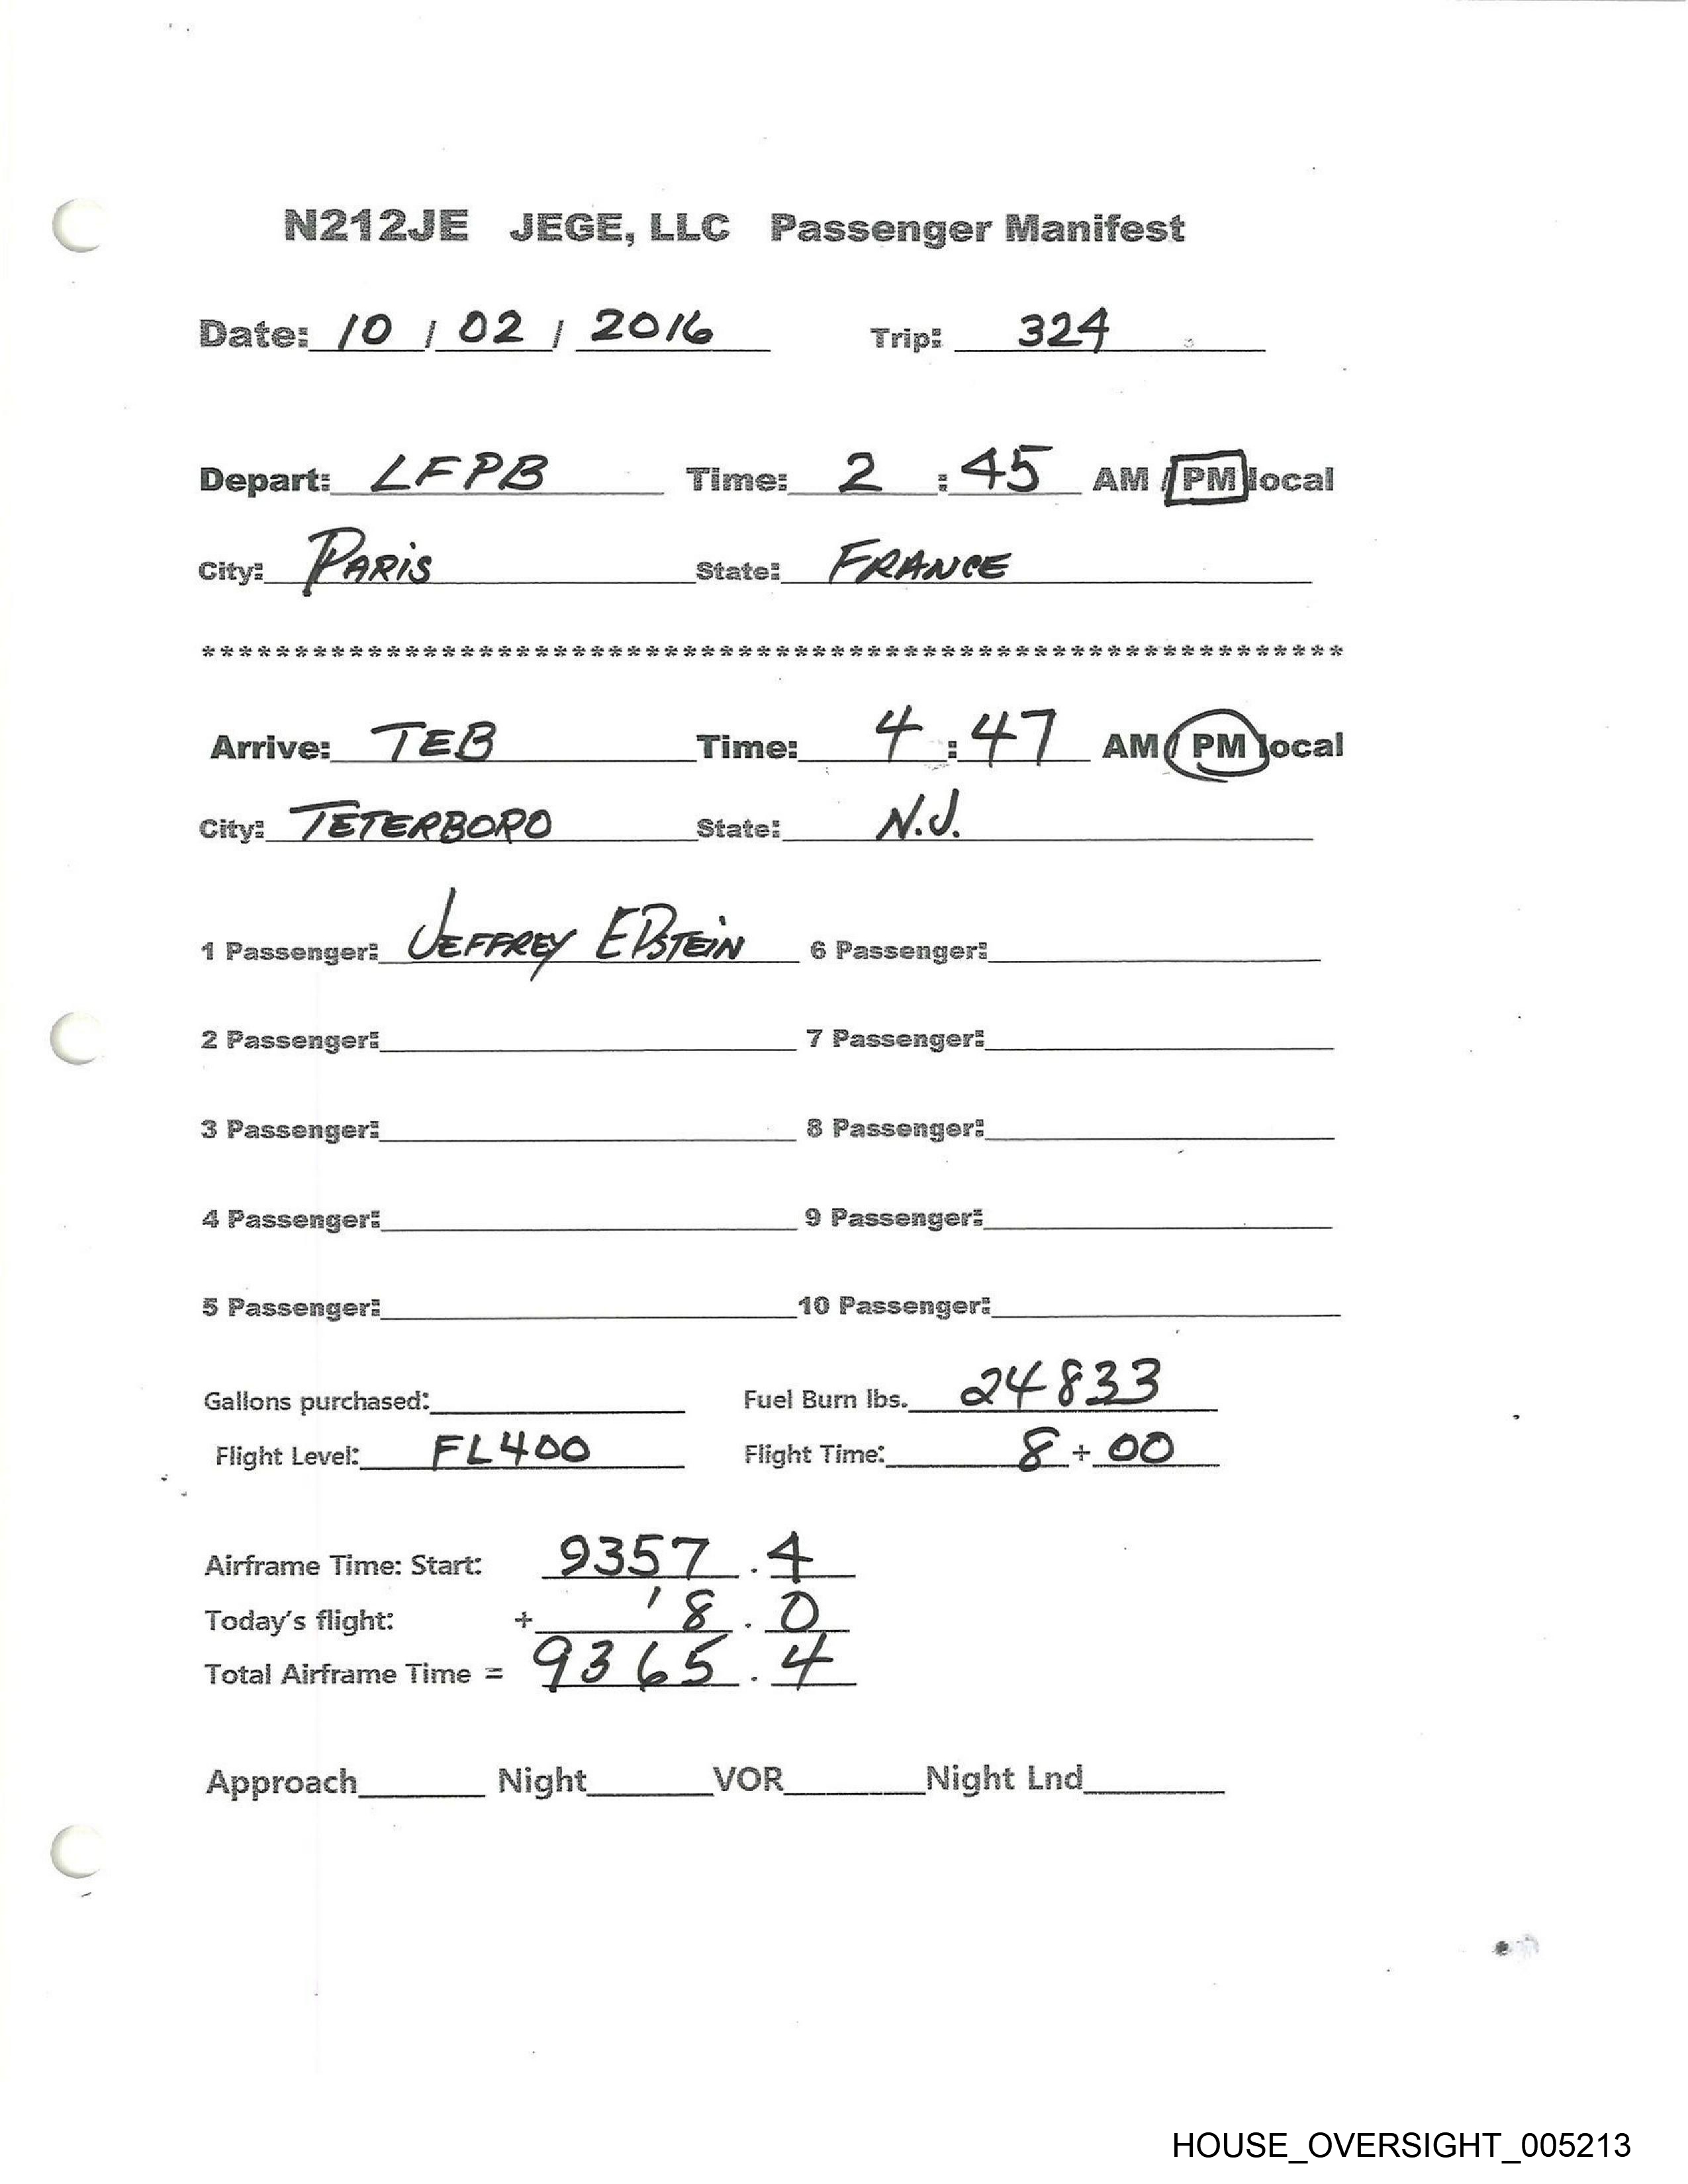 N212JE JEGE, LLC Passenger Manifest
Date: 10 / 02 / 2016 Trip: 324
Depart: LFPB Time: 2 : 45 AM / PM local
City: PARIS State: FRANCE
**************************************************************
Arrive: TEB Time: 4 : 47 AM / PM local
City: TETERBORO State: N.J.
1 Passenger: JEFFREY EPSTEIN 6 Passenger:
2 Passenger: 7 Passenger:
3 Passenger: 8 Passenger:
4 Passenger: 9 Passenger:
5 Passenger: 10 Passenger:
Gallons purchased: Fuel Burn lbs. 24833
Flight Level: FL400 Flight Time: 8 + 00
Airframe Time: Start: 9357 . 4
Today's flight: + 8 . 0
Total Airframe Time = 9365 . 4
Approach Night VOR Night Lnd
HOUSE_OVERSIGHT_005213